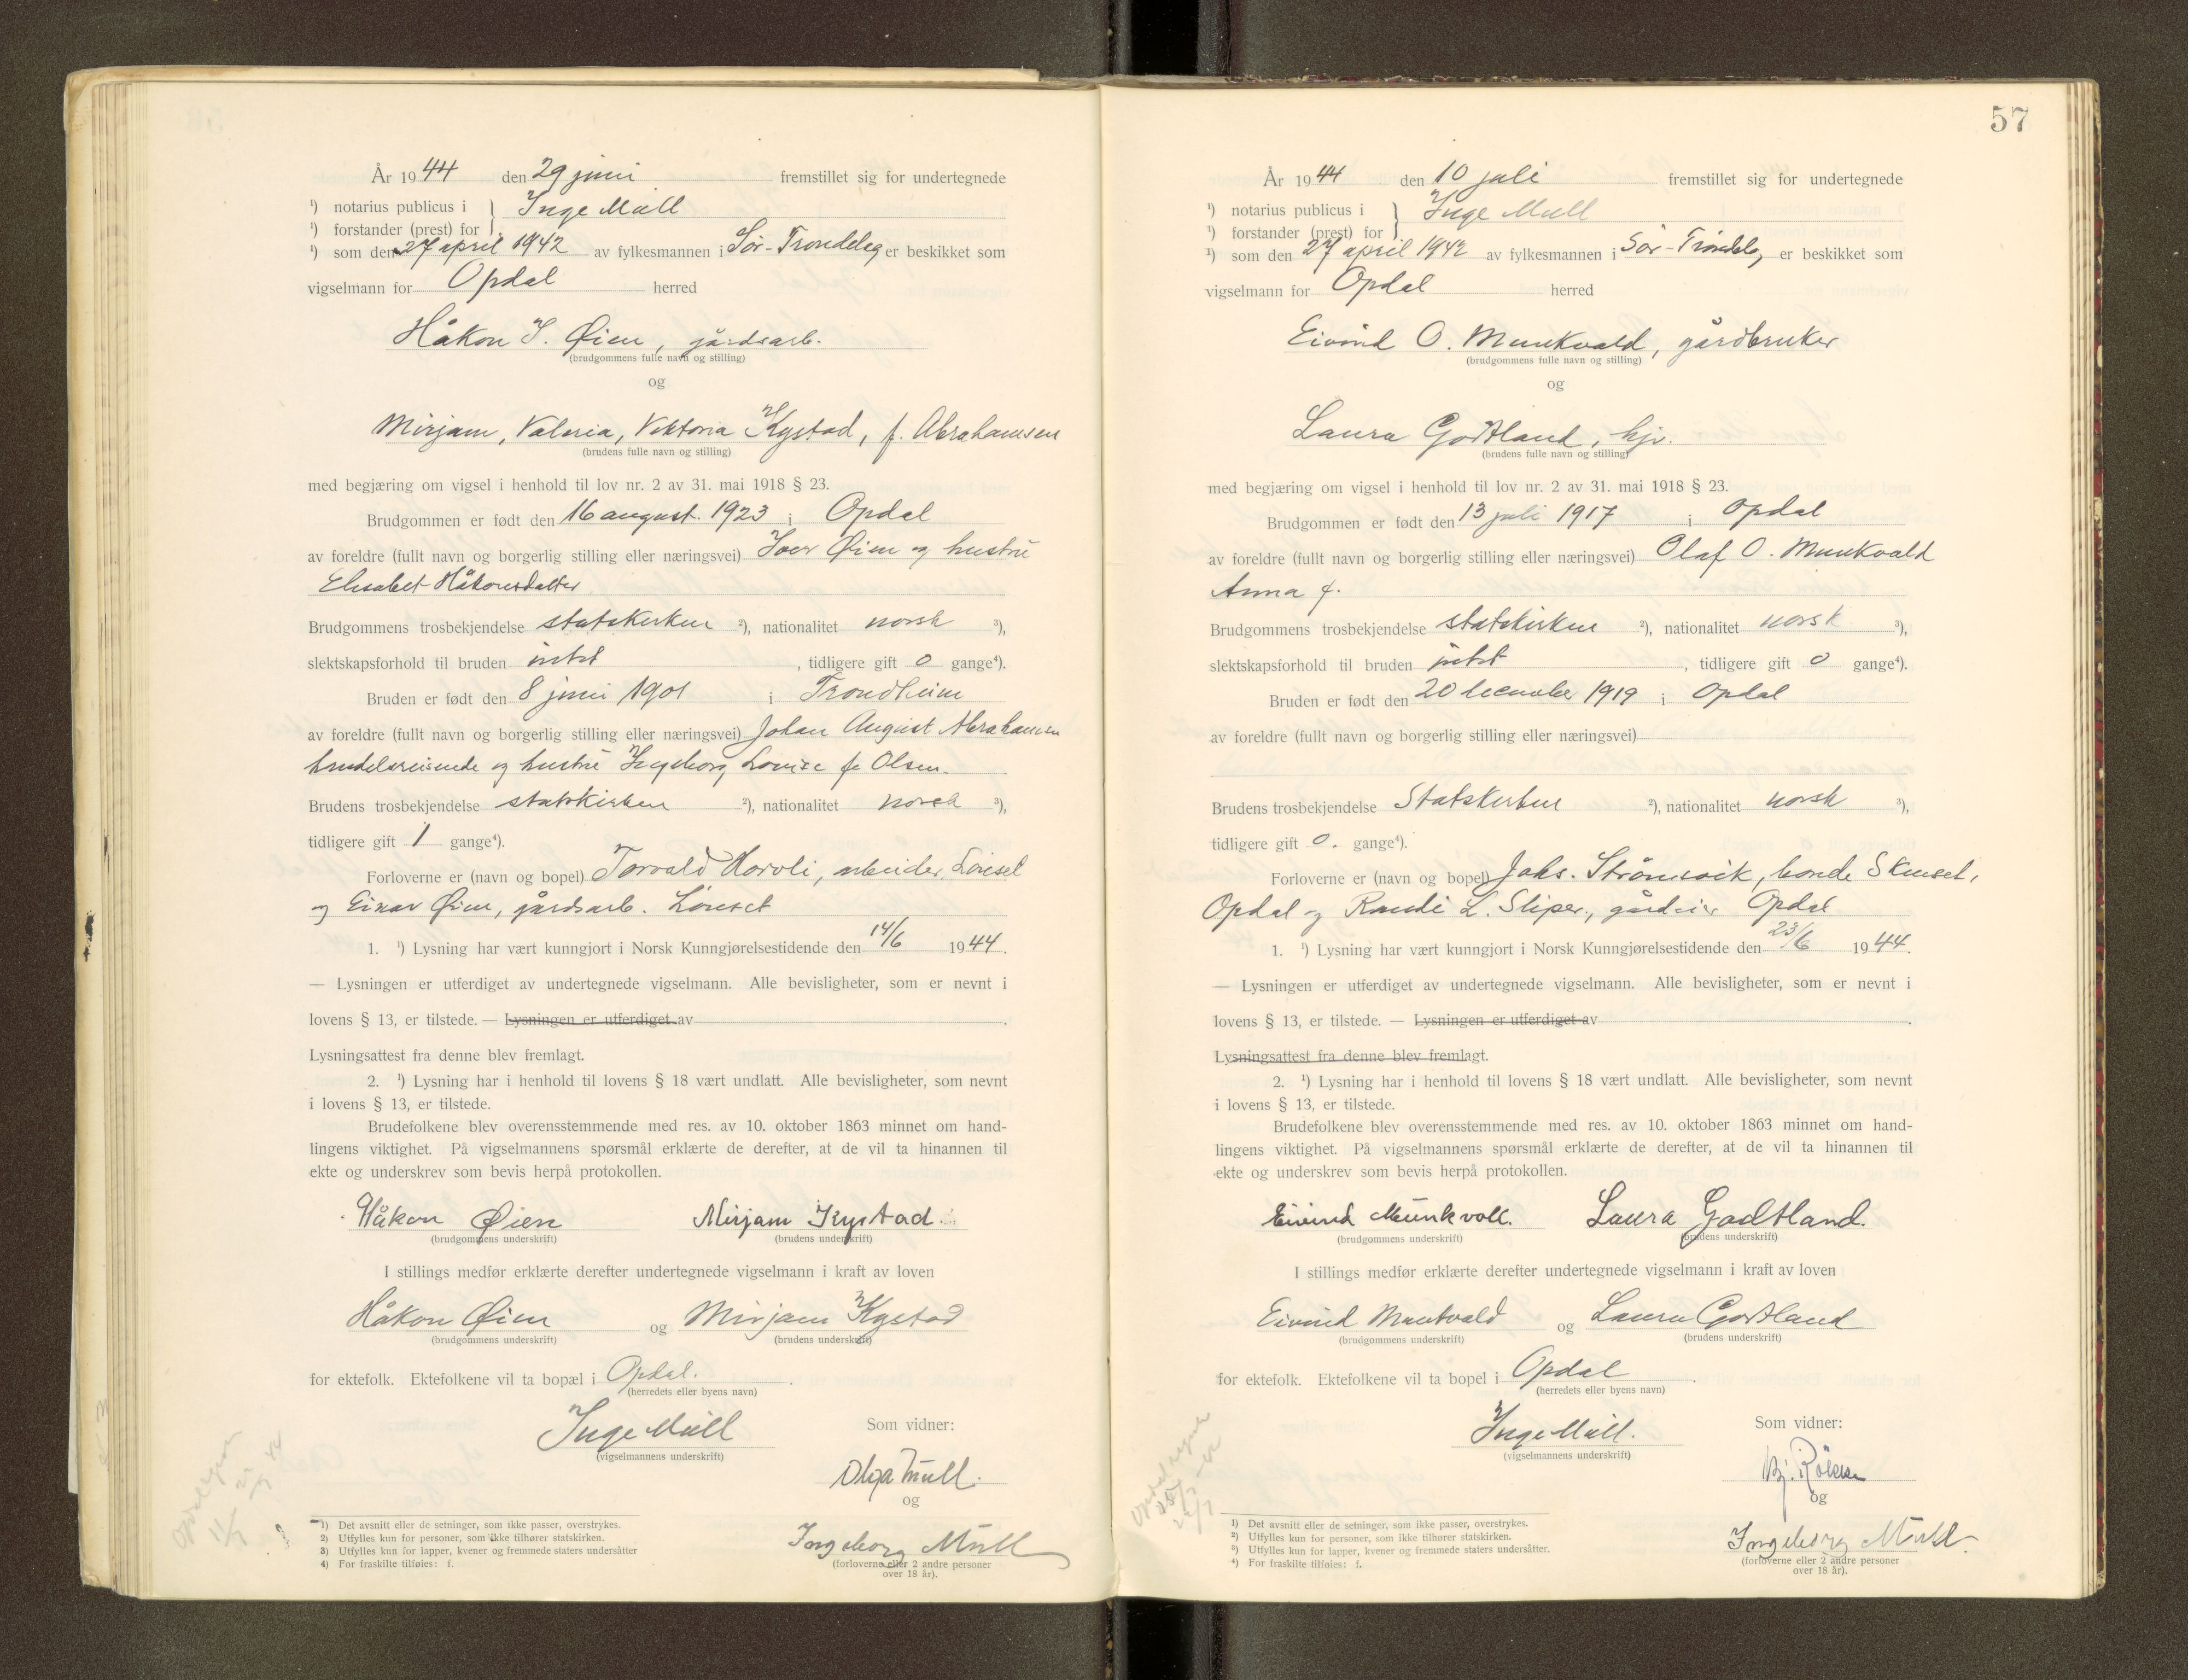 År 1944 den 29 juni fremstillet sig for undertegnede
¹) notarius publicus i } Inge Mull
¹) forstander (prest) for
¹) som den 27 april 1942 av fylkesmannen i Sør-Trøndelag er beskikket som
vigselmann for Opdal herred
Håkon I. Øien, gårdsarb.
(brudgommens fulle navn og stilling)
og
Mirjam, Valeria, Viktoria Kystad, f. Abrahamsen
(brudens fulle navn og stilling)
med begjæring om vigsel i henhold til lov nr. 2 av 31. mai 1918 § 23.
Brudgommen er født den 16 august. 1923 i Opdal
av foreldre (fullt navn og borgerlig stilling eller næringsvei) Iver Øien og hustru
Elisabet Håkonsdatter
Brudgommens trosbekjendelse statskirken ²), nationalitet norsk ³),
slektskapsforhold til bruden intet, tidligere gift 0 gange⁴).
Bruden er født den 8 juni 1901 i Trondheim
av foreldre (fullt navn og borgerlig stilling eller næringsvei) Johan August Abrahamsen
handelsreisende og hustru Ingeborg Louise f. Olsen.
Brudens trosbekjendelse statskirken ²), nationalitet norsk ³),
tidligere gift 1 gange⁴).
Forloverne er (navn og bopel) Torvald Horvli, arbeider, Lønset
og Einar Øien, gårdsarb. Lønset
1. ¹) Lysning har vært kunngjort i Norsk Kunngjørelsestidende den 14/6 1944.
— Lysningen er utferdiget av undertegnede vigselmann. Alle bevisligheter, som er nevnt i
lovens § 13, er tilstede. — Lysningen er utferdiget av
Lysningsattest fra denne blev fremlagt.
2. ¹) Lysning har i henhold til lovens § 18 vært undlatt. Alle bevisligheter, som nevnt
i lovens § 13, er tilstede.
Brudefolkene blev overensstemmende med res. av 10. oktober 1863 minnet om hand-
lingens viktighet. På vigselmannens spørsmål erklærte de derefter, at de vil ta hinannen til
ekte og underskrev som bevis herpå protokollen.
Håkon Øien Mirjam Kystad.
(brudgommens underskrift) (brudens underskrift)
I stillings medfør erklærte derefter undertegnede vigselmann i kraft av loven
Håkon Øien og Mirjam Kystad
(brudgommens underskrift) (brudens underskrift)
for ektefolk. Ektefolkene vil ta bopæl i Opdal.
(herredets eller byens navn)
Inge Mull Som vidner:
(vigselmannens underskrift)
Olga Mull.
og
Ingeborg Mull
(forloverne eller 2 andre personer
over 18 år).
¹) Det avsnitt eller de setninger, som ikke passer, overstrykes.
²) Utfylles kun for personer, som ikke tilhører statskirken.
³) Utfylles kun for lapper, kvener og fremmede staters undersåtter
⁴) For fraskilte tilføies: f.
57
År 1944 den 10 juli fremstillet sig for undertegnede
¹) notarius publicus i } Inge Mull
¹) forstander (prest) for
¹) som den 27 april 1942 av fylkesmannen i Sør-Trøndelag er beskikket som
vigselmann for Opdal herred
Eivind O. Munkvold, gårdbruker
(brudgommens fulle navn og stilling)
og
Laura Godtland, hjv.
(brudens fulle navn og stilling)
med begjæring om vigsel i henhold til lov nr. 2 av 31. mai 1918 § 23.
Brudgommen er født den 13 juli 1917 i Opdal
av foreldre (fullt navn og borgerlig stilling eller næringsvei) Olaf O. Munkvold
Anna f.
Brudgommens trosbekjendelse statskirken ²), nationalitet norsk ³),
slektskapsforhold til bruden intet, tidligere gift 0 gange⁴).
Bruden er født den 20 december 1919 i Opdal
av foreldre (fullt navn og borgerlig stilling eller næringsvei)
Brudens trosbekjendelse Statskirken ²), nationalitet norsk ³),
tidligere gift 0. gange⁴).
Forloverne er (navn og bopel) Johs. Strømsvik, bonde Skuset,
Opdal og Randi L. Sliper, gårdeier Opdal
1. ¹) Lysning har vært kunngjort i Norsk Kunngjørelsestidende den 23/6 1944.
— Lysningen er utferdiget av undertegnede vigselmann. Alle bevisligheter, som er nevnt i
lovens § 13, er tilstede. — Lysningen er utferdiget av
Lysningsattest fra denne blev fremlagt.
2. ¹) Lysning har i henhold til lovens § 18 vært undlatt. Alle bevisligheter, som nevnt
i lovens § 13, er tilstede.
Brudefolkene blev overensstemmende med res. av 10. oktober 1863 minnet om hand-
lingens viktighet. På vigselmannens spørsmål erklærte de derefter, at de vil ta hinannen til
ekte og underskrev som bevis herpå protokollen.
Eivind Munkvoll. Laura Godtland.
(brudgommens underskrift) (brudens underskrift)
I stillings medfør erklærte derefter undertegnede vigselmann i kraft av loven
Eivind Munkvold og Laura Godtland
(brudgommens underskrift) (brudens underskrift)
for ektefolk. Ektefolkene vil ta bopel i Opdal
(herredets eller byens navn)
Inge Mull. Som vidner:
(vigselmannens underskrift)
og
Ingeborg Mull.
(forloverne eller 2 andre personer
over 18 år).
¹) Det avsnitt eller de setninger, som ikke passer, overstrykes.
²) Utfylles kun for personer, som ikke tilhører statskirken.
³) Utfylles kun for lapper, kvener og fremmede staters undersåtter.
⁴) For fraskilte tilføies: f.